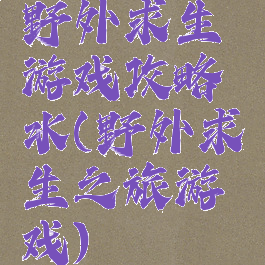 野外求生
游戏攻略
水(野外求
生之旅游
戏)